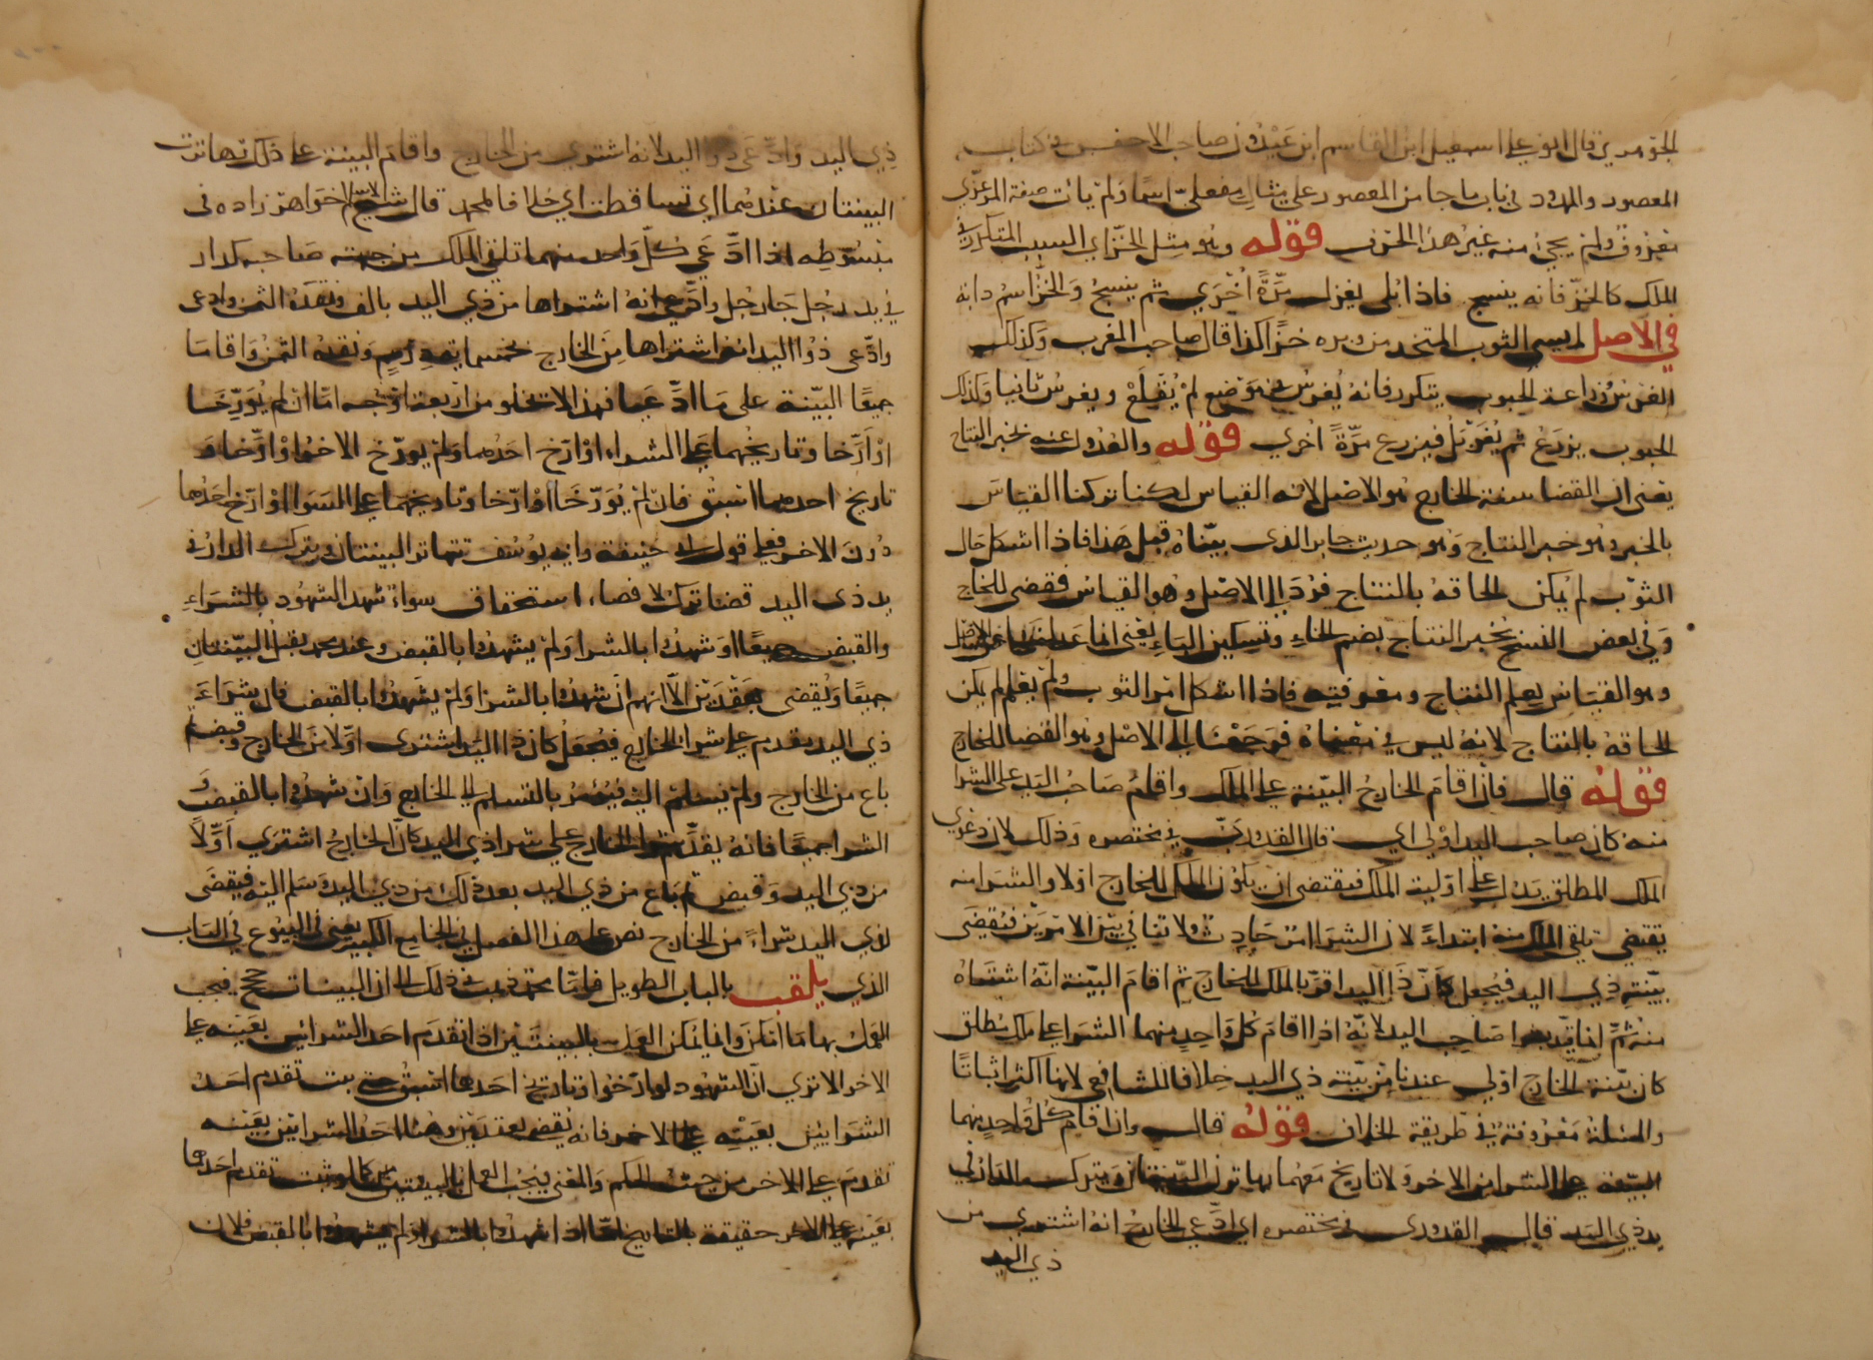 الجوهري قال ابو علي اسمعيل ابن القاسم ابن عيذون صاحب الاخفش في كتاب
المقصور والممدود في باب ما جا من المقصور على مثال مفعلى اسما ولم يات صفة المرعزى
معروف ولم يجئ منه غير هذا الحرف قوله وهو مثل الخز اي السبب المتكرر في
الملك كالخز فانه ينسج فاذا بلى يغزل مرة اخرى ثم ينسج والخز اسم دابة
في الاصل ثم سمي الثوب المتخذ من وبره خزا كذا قال صاحب المغرب وكذلك
الغرس وزراعة الحبوب يتكرر فانه يغرس في موضع ثم يقلع ويغرس ثانيا وكذلك
الحبوب يزرع ثم يغربل فيزرع مرة اخرى قوله والعدول عنه بخبر النتاج
يعني ان القضا ببينة الخارج هو الاصل لانه القياس لكنا تركنا القياس
بالخبر وهو خبر النتاج وهو حديث جابر الذي بيناه قبل هذا فاذا اشكل حال
الثوب لم يمكن الحاقه بالنتاج فرد الى الاصل وهو القياس فقضى للخارج
وفي بعض النسخ بخبر النتاج بضم الخاء وتسكين الباء يعني انما عدلنا عن الاصل
وهو القياس بعلم النتاج ومعرفته فاذا اشكل امر الثوب ولم يعلم لم يمكن
الحاقه بالنتاج لانه ليس في معناه فرجعنا الى الاصل وهو القضا للخارج
قوله قال فان اقام الخارج البينة على الملك واقام صاحب اليد على الشرا
منه كان صاحب اليد اولى اي قال القدوري في مختصره وذلك لان دعوى
الملك المطلق يدل على اولية الملك فيقتضي ان يكون الملك للخارج اولا والشرا منه
يقتضي تلقي الملك منه ابتداء لان الشرا امر حادث ولا تنافي بين الامرين فيقضى
ببينة ذي اليد فيجعل كان ذا اليد اقر بالملك للخارج ثم اقام البينة انه اشتراه
منه ثم انما قيد بشرا صاحب اليد لانه اذا اقام كل واحد منهما الشرا على ملك مطلق
كان بينة الخارج اولى عندنا من بينة ذي اليد خلافا للشافعي لانها اكثر اثباتا
والمسئلة معروفة في طريقة الخلاف قوله قال وان اقام كل واحد منهما
البينة على الشرا من الاخر ولا تاريخ معهما تهاترت البينتان وتترك الدار في
يد ذي اليد قال القدوري في مختصره اي ادعى الخارج انه اشترى من
ذي اليد
ذي اليد وادعى ذو اليد لانه اشترى من الخارج واقام البينة على ذلك تهاترت
البينتان عندهما اي تساقطت اي خلافا لمحمد قال شيخ الاسلام خواهر زاده في
مبسوطه اذا ادعى كل واحد منهما تلقي الملك من جهة صاحبه كدار
في يد رجل جا رجل وادعى انه اشتراها من ذي اليد بالف ونقده الثمن وادعى
وادعى ذو اليد انه اشتراها من الخارج بخمسماية درهم ونقده الثمن واقاما
جميعا البينة على ما ادعيا فهذا لا يخلو من اربعة اوجه اما ان لم يورخا
او ارخا وتاريخهما على السواء او ارخ احدهما ولم يورخ الاخر او ارخا و
تاريخ احدهما اسبق فان لم يورخا او ارخا وتاريخهما على السوا او ارخ احدهما
دون الاخر فعلى قول ابي حنيفة وابي يوسف تتهاتر البينتان ويترك الدار في
يد ذي اليد قضا ترك لا قضاء استحقاق سواء شهد الشهود بالشراء
والقبض جميعا او شهدوا بالشرا ولم يشهدوا بالقبض وعند محمد يقبل البينتان
جميعا ويقضى بعقدين الا انهم ان شهدوا بالشرا ولم يشهدوا بالقبض فان شراء
ذي اليد يقدم على شرا الخارج فيجعل كان ذا اليد اشترى اولا من الخارج وقبض ثم
باع من الخارج ولم يسلم اليه فيؤمر بالتسليم الى الخارج وان شهدوا بالقبض و
الشرا جميعا فانه يقدم شرا الخارج على شرا ذي اليد كان الخارج اشترى اولا
من ذي اليد وقبض ثم باع من ذي اليد بعد ذلك من ذي اليد وسلم اليه فيقضى
لذي اليد شراء من الخارج نص على هذا الفصل في الجامع الكبير يعني في البيوع في الباب
الذي يلقب بالباب الطويل فاما محمد ذهب في ذلك الى ان البينات حجج فيجب
العمل بها ما امكن وانما يمكن العمل بالبينتين اذا تقدم احد الشرائين بعينه على
الاخر الا ترى ان الشهود لو ارخوا وتاريخ احدهما اسبق حتى يثبت تقدم احد
الشرايين بعينه على الاخر فانه يقضى بعقدين وهنا احد الشرائين بعينه
تقدم على الاخر من حيث الحكم والمعنى فيجب العمل بالبينتين كما لو ثبت تقدم احدهما
بعينه على الاخر حقيقة بالتاريخ اما اذا شهدوا بالشرا ولم يشهدوا بالقبض فلان